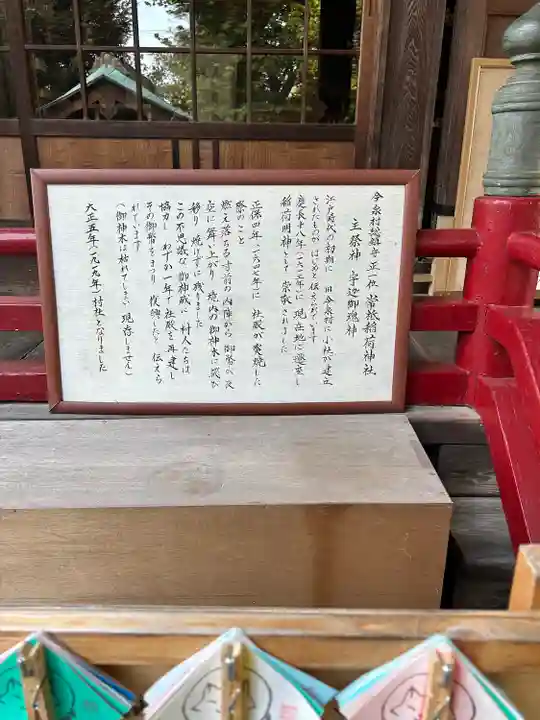 今泉村総鎮守 正一位 常祇稲荷神社
主祭神 宇迦御魂神
江戸時代の初期に 旧今泉村に小社が建立
されたものが はじめと伝えられています
慶長十八年（一六一三年）に 現在地に遷座し
稲荷明神として 崇敬されました
正保四年（一六四七年）に 社殿が炎焼した
際のこと
燃え落ちる寸前の 内陣から 御幣が 夜
空に舞い上がり 境内の御神木に飛び
移り 焼けずに残りました
この不思議な御神威に 村人たちは
協力し わずか一年で 社殿を再建し
その御幣をまつり 復興したと 伝えら
れています
（御神木は枯れてしまい 現存しません）
大正五年（一九一九年）村社となりました